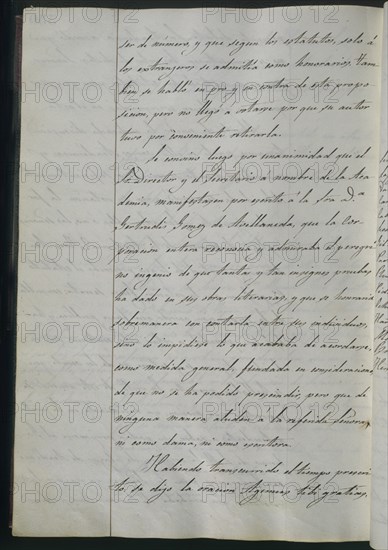 ser de número, y que segun los estatutos, solo á
los extrangeros se admitia como honorarios. Tam-
bien se habló en pro y en contra de esta propo-
sicion, pero no llegó a votarse por que su autor
tuvo por conveniente retirarla.
Se convino luego por unanimidad que el
Sr. Director y el Secretario a nombre de la Aca-
demia, manifestasen por escrito á la Sra. D.a
Gertrudis Gomez de Avellaneda, que la Cor-
poracion entera reconocia y admiraba el peregri-
no ingenio de que tantas y tan insignes pruebas
ha dado en sus obras literarias, y que se honraria
sobremanera con contarla entre sus individuos,
sino lo impidiese lo que acababa de acordarse
como medida general, fundada en consideraciones
de que no se ha podido prescindir, pero que de
ninguna manera aluden a la referida Señora,
ni como dama, ni como escritora.
Habiendo transcurrido el tiempo prescri-
to, se dijo la oracion Agimus tibi gratias,
PHOTO12